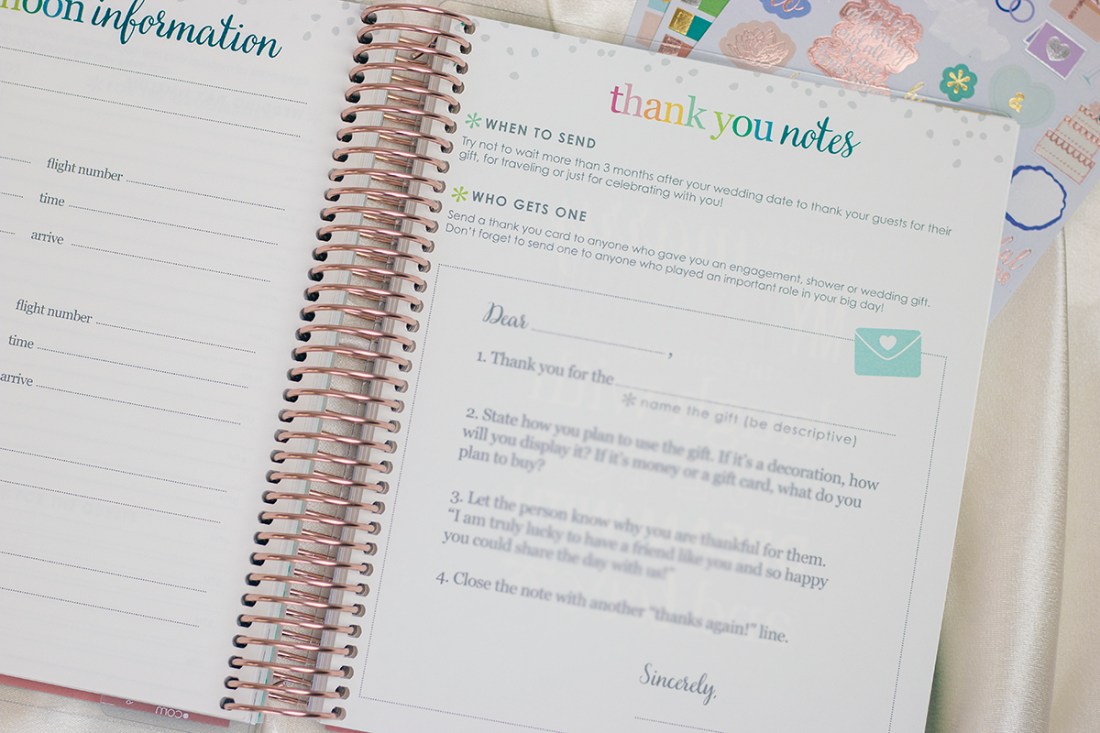 oon information
flight number
time
arrive
flight number
time
arrive
thank you notes
WHEN TO SEND
Try not to wait more than 3 months after your wedding date to thank your guests for their
gift, for traveling or just for celebrating with you!
WHO GETS ONE
Send a thank you card to anyone who gave you an engagement, shower or wedding gift.
Don't forget to send one to anyone who played an important role in your big day!
Dear ,
1. Thank you for the
* name the gift (be descriptive)
2. State how you plan to use the gift. If it's a decoration, how
will you display it? If it's money or a gift card, what do you
plan to buy?
3. Let the person know why you are thankful for them.
"I am truly lucky to have a friend like you and so happy
you could share the day with us!"
4. Close the note with another "thanks again!" line.
Sincerely,